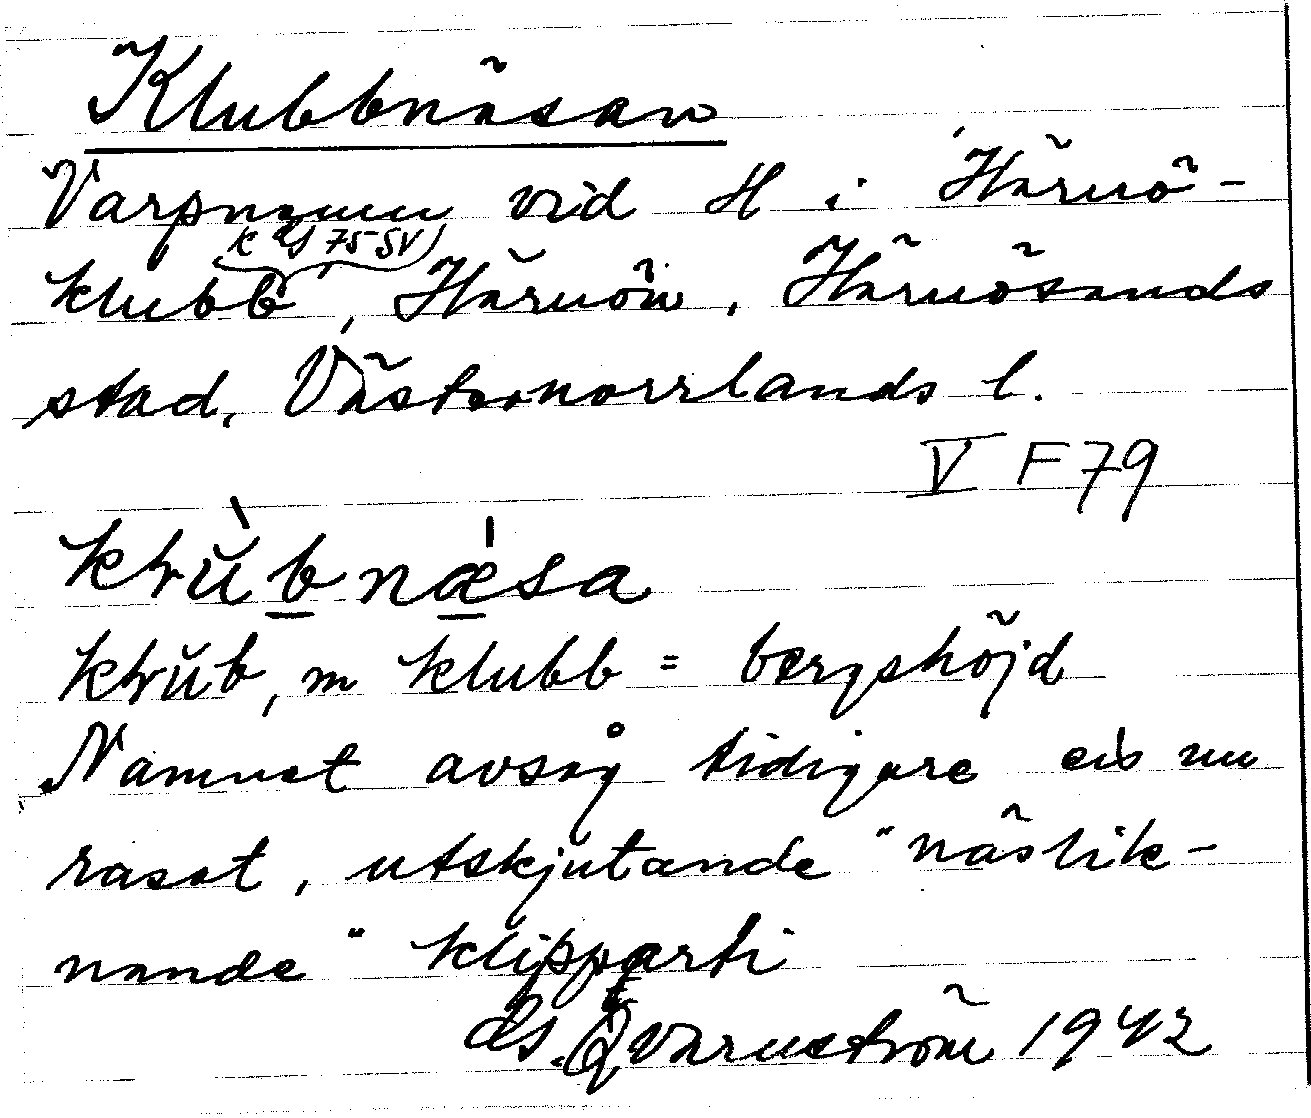 Klubbnäsan
Varpnamn vid H i Härnö-
klubb, Härnön, Härnösands
stad, Västernorrlands l.
V F79
klùbnæ'sa
klŭb, m klubb = bergshöjd
Namnet avsåg tidigare ett nu
rasat, utskjutande "näslik-
nande" klipparti
Qvarnström 1942